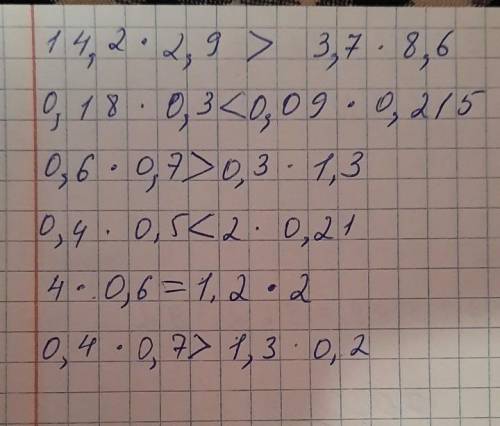 14,2 · 2,9 > 3,7 · 8,6
0,18 · 0,3 < 0,09 · 0,215
0,6 · 0,7 > 0,3 · 1,3
0,4 · 0,5 < 2 · 0,21
4 · 0,6 = 1,2 · 2
0,4 · 0,7 > 1,3 · 0,2